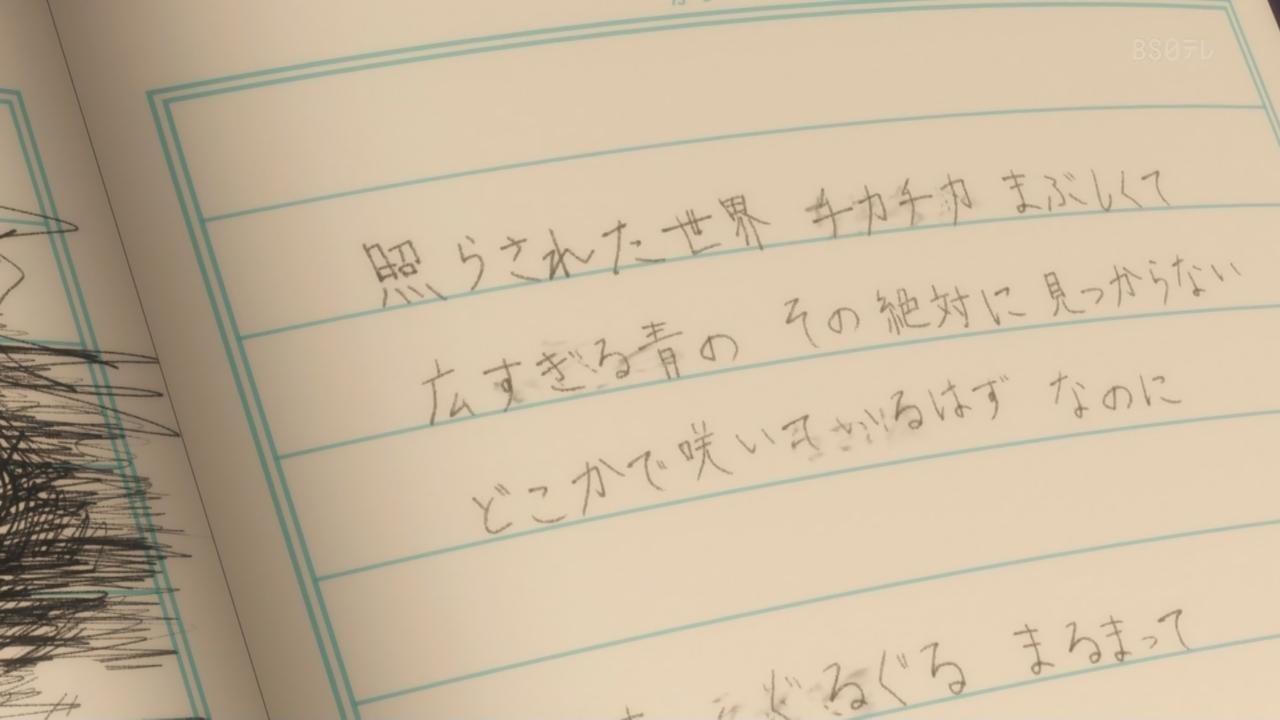 BS日テレ
照らされた世界 チカチカ まぶしくて
広すぎる青の その絶対に 見つからない
どこかで咲いているはず なのに
ぐるぐる まるまって